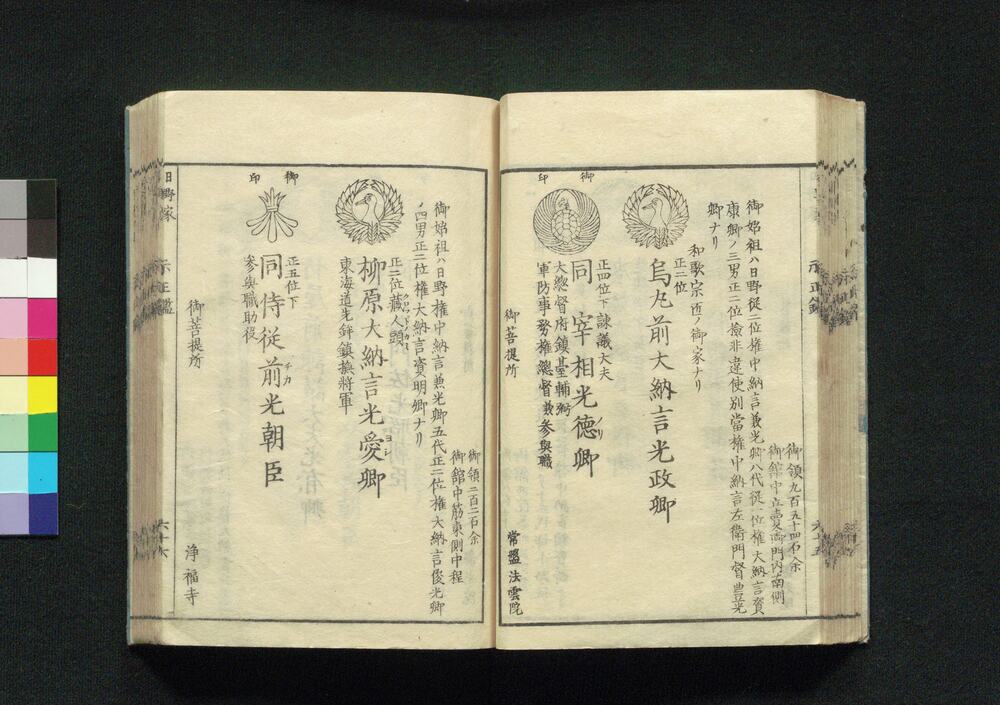 御領九百五十四石余
御館中立賣御門内南側
御姊祖ハ日野従二位権中納言兼光卿八代従一位権大納言資
康卿ノ三男正二位檢非違使別當権中納言左衛門督豊光
卿ナリ
和歌宗匠ノ御家ナリ
正二位
烏丸前大納言光政卿
御印
正四位下諌議大夫
同宰相光徳卿
ノリ
大總督府鎮䑓輔弼
軍防事務権總督兼参與職
御菩提所
常盤法雲院
御領二百二石余
御館中筋東側中程
御姊祖ハ日野権中納言兼光卿五代正二位権大納言俊光卿
ノ四男正二位権大納言資明卿ナリ
正二位藏人頭
柳原大納言光愛卿
ヨシ
東海道先鉾鎮撫將軍
御印
正五位下
同侍従前光朝臣
チカ
参與職助役
御菩提所
浄福寺
日野家
六十六